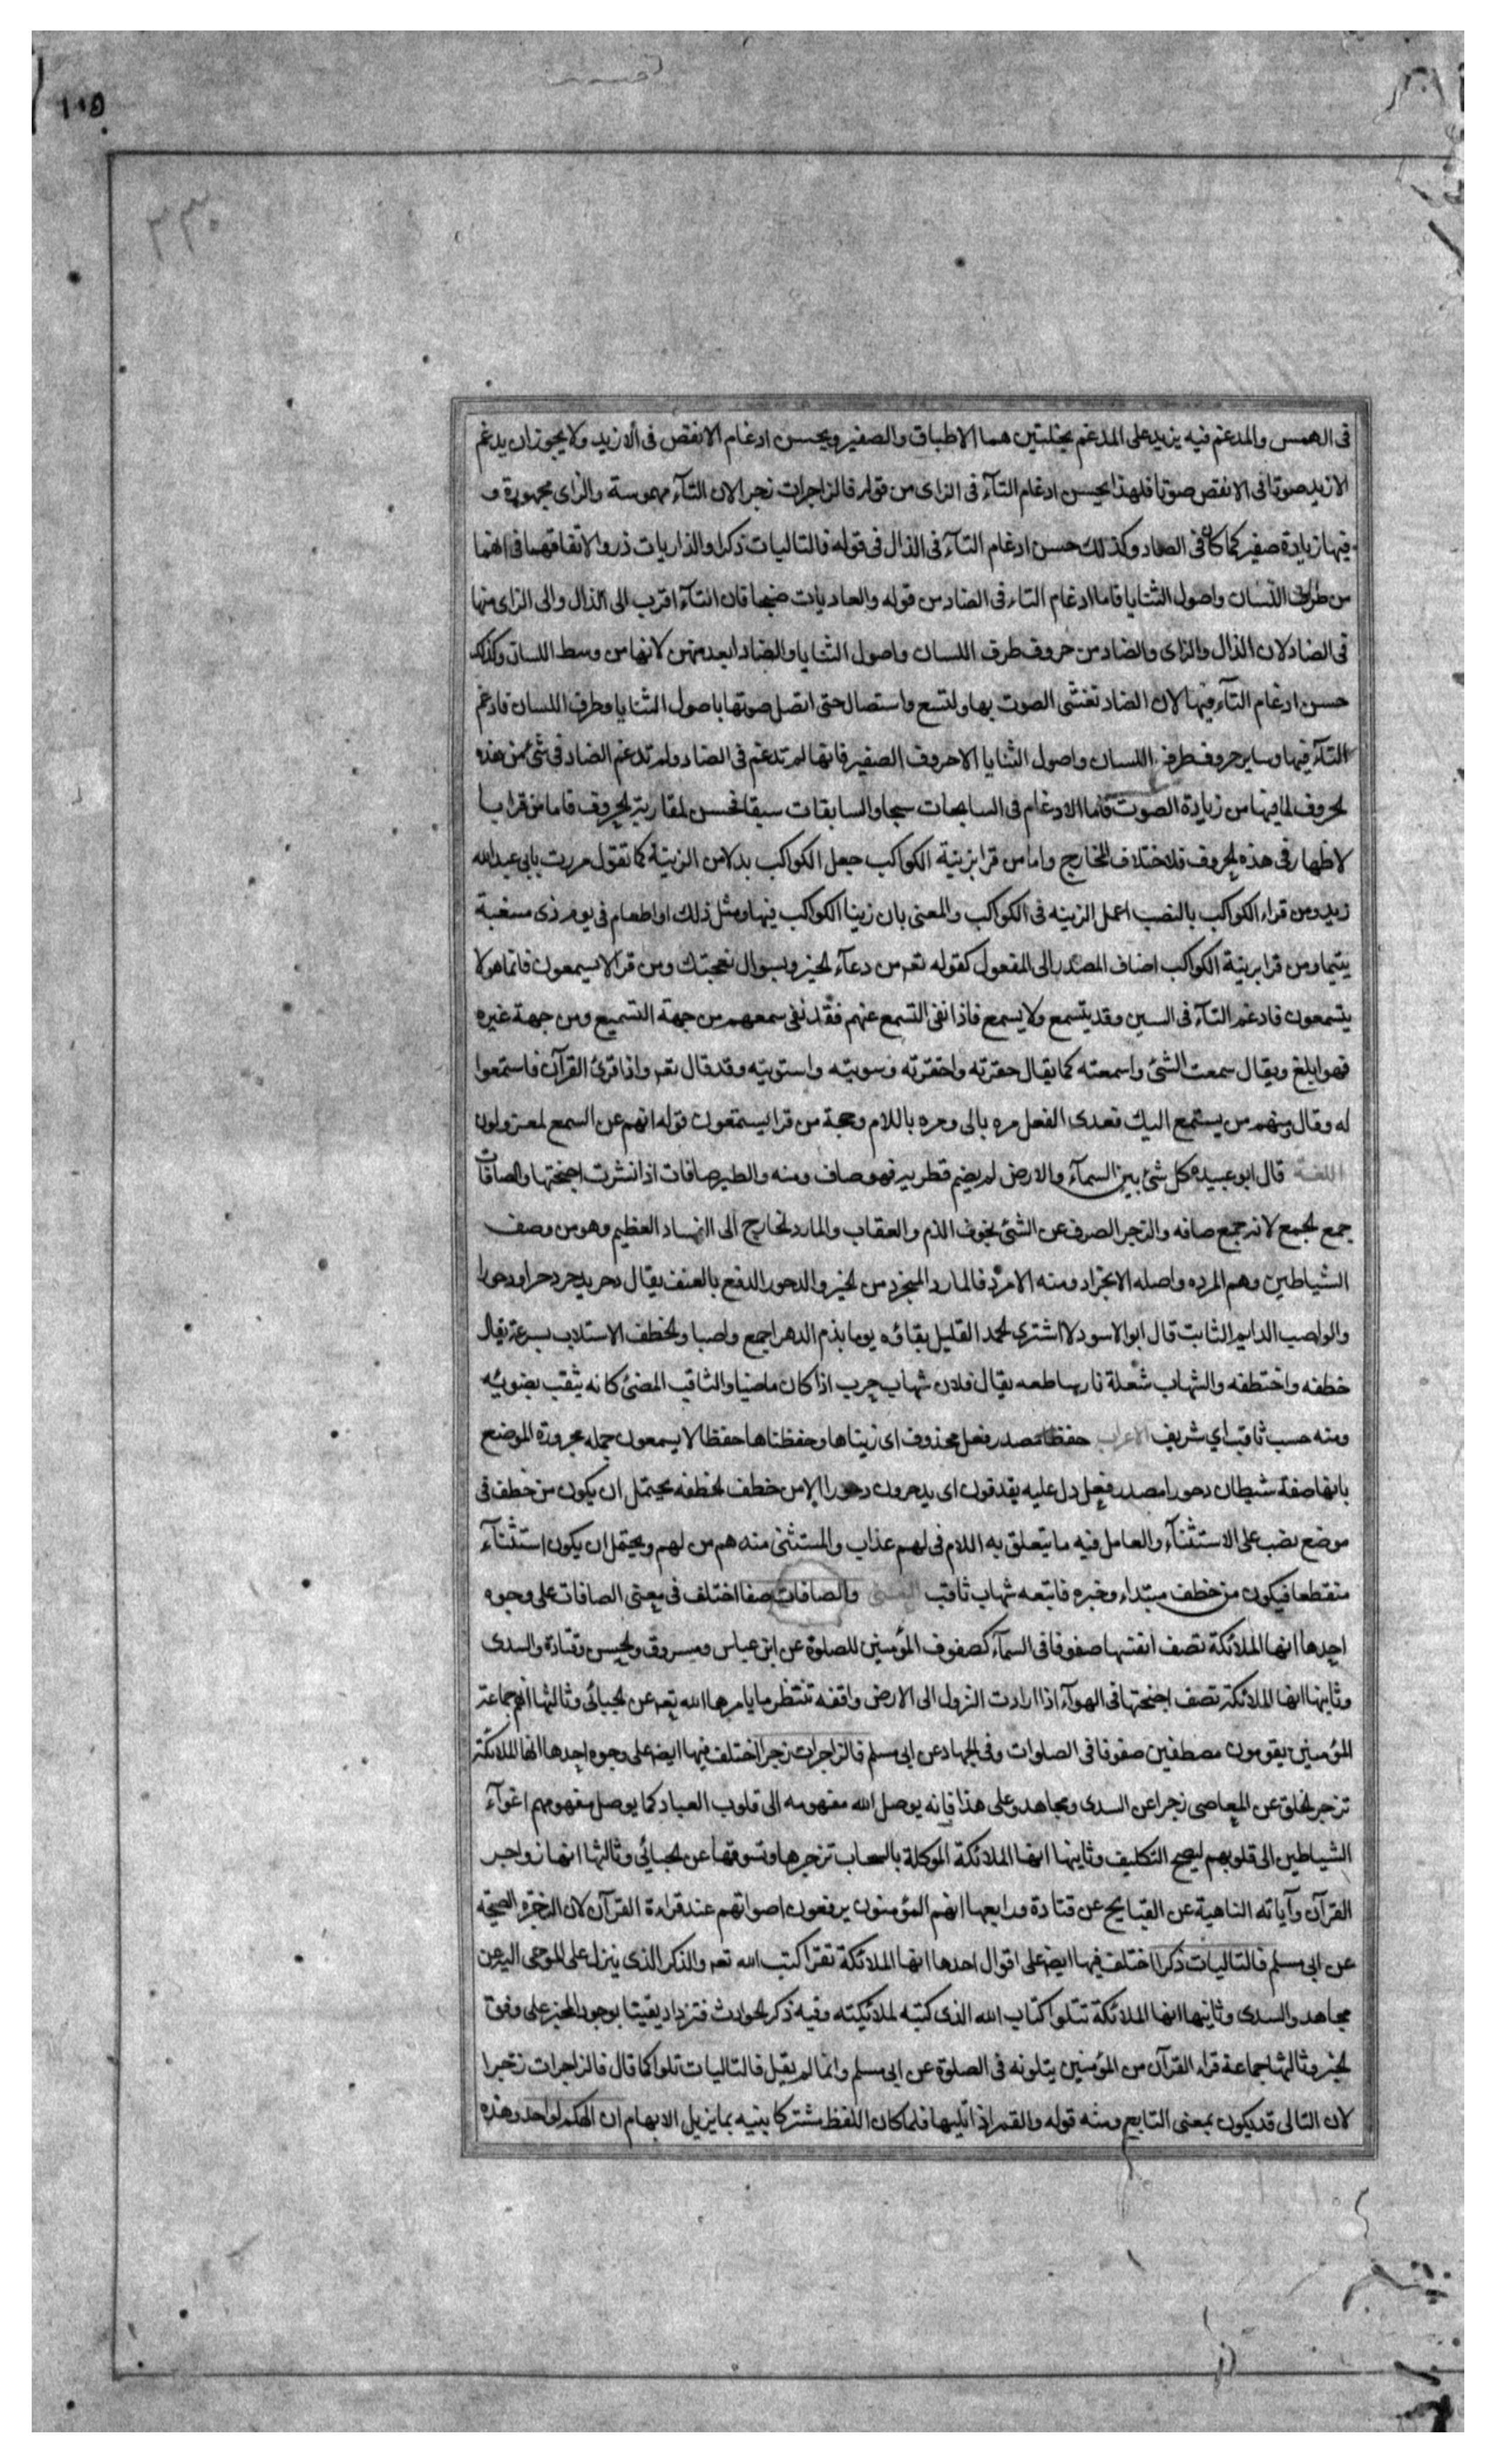 ١٠٥
٢٣٠
فى الهمس والمدغم فيه يزيد على المدغم بخلتين هما الاطباق والصفير ويحسن ادغام الانقص فى الازيد ولا يجوز ان يدغم
الازيد صوتا فى الانقص صوتا فلهذا يحسن ادغام التآء فى الزاى من قوله فالزاجرات زجرا لان التآء مهموسة والزاى مجهورة و
فيها زيادة صفير كما كان فى الصاد وكذلك حسن ادغام التآء فى الذال فى قوله فالتاليات ذكرا والذاريات ذروا لاتفاقهما فى انهما
من طرف اللسان واصول الثنايا فاما ادغام التاء فى الضاد من قوله والعاديات ضبحا فان التآء اقرب الى الذال والى الزاى منها
فى الضاد لان الذال والزاى والضاد من حروف طرف اللسان واصول الثنايا والضاد ابعد منهن لانها من وسط اللسان وكذلك
حسن ادغام التآء فيها لان الضاد تفشى الصوت بها ولتسع واستصال حتى اتصل صوتها باصول الثنايا وطرف اللسان فادغم
التآء فيها وساير حروف طرف اللسان واصول الثنايا الا حروف الصفير فانها لم تدغم فى الضاد ولم تدغم الضاد فى شئ من هذه
لحروف لما فيها من زيادة الصوت فاما الادغام فى السابحات سبحا والسابقات سبقا فحسن لمقاربة لحروف فاما من قرا با
لاظهار فى هذه لحروف فلاختلاف المخارج واما من قرا بزينة الكواكب جعل الكواكب بدلا من الزينة كما تقول مررت بابى عبد الله
زيد ومن قراء الكواكب بالنصب اعمل الزينه فى الكواكب والمعنى بان زينا الكواكب فيها ومثل ذلك او اطعام فى يوم ذى مسغبة
يتيما ومن قرا بزينة الكواكب اضاف المصدر الى المفعول كقوله تعم من دعآء لخير وبسوال نعجتك ومن قرا لا يسمعون فانما هو لا
يتسمعون فادغم التآء فى السين وقد يتسمع ولا يسمع فاذا نفى التسمع عنهم فقد نفى سمعهم من جهة التسميع ومن جهة غيره
فهو ابلغ ويقال سمعت الشئ واسمعته كما يقال حقرته واحقرته وسويته واستويته وقد قال تعم واذا قرئ القرآن فاستمعوا
له وقال ومنهم من يستمع اليك فعدى الفعل مره بالى ومره باللام وحجة من قرا يستمعون قوله انهم عن السمع لمعزولون
اللغة قال ابو عبيده كل شئ بين السمآء والارض لم يضم قطريه فهو صاف ومنه والطير صافات اذا نشرت اجنحتها والصافات
جمع لجمع لانه جمع صافه والزجر الصرف عن الشئ بخوف الذم والعقاب والمارد لخارج الى الفساد العظيم وهو من وصف
الشياطين وهم المرده واصله الانجراد ومنه الامرد فالمارد المنجرد من لخير والدحور الدفع بالعنف يقال دحر يدحر دحرا ودحورا
والواصب الدايم الثابت قال ابو الاسود لا اشترى لحمد القليل بقاؤه يوما بذم الدهر اجمع واصبا ولخطف الاستلاب بسرعة يقال
خطفه واختطفه والشهاب شعلة نار ساطعه يقال فلان شهاب حرب اذا كان ماضيا والثاقب المضئ كانه يثقب بضوئه
ومنه حسب ثاقب اى شريف الاعراب حفظا مصدر فعل محذوف اى زيناها وحفظناها حفظا لا يسمعون جمله مجرورة الموضع
بانها صفة شيطان دحورا مصدر فعل دل عليه يقذفون اى يدحرون دحورا الا من خطف لخطفه يحتمل ان يكون من خطف فى
موضع نصب على الاستثنآء والعامل فيه ما يتعلق به اللام فى لهم عذاب والمستثنى منه هم من لهم ويحتمل ان يكون استثنآء
منقطعا فيكون من خطف مبتداء وخبره فاتبعه شهاب ثاقب المعنى والصافات صفا اختلف فى معنى الصافات على وجوه
احدها انها الملائكة تصف انفسها صفوفا فى السمآء كصفوف المؤمنين للصلوة عن ابن عباس ومسروق ولحسن وقتادة والسدى
وثانيها انها الملائكة تصف اجنحتها فى الهوآء اذا ارادت النزول الى الارض واقفة تنتظر ما يامرها الله تعم عن لجبائى وثالثها انهم جماعة
المؤمنين يقومون مصطفين صفوفا فى الصلوات وفى لجهاد عن ابى مسلم فالزاجرات زجرا اختلف فيها ايضا على وجوه احدها انها الملائكة
تزجر لخلق عن المعاصى زجرا عن السدى ومجاهد وعلى هذا فانه يوصل الله مفهومه الى قلوب العباد كما يوصل مفهومهم اغوآء
الشياطين الى قلوبهم ليصح التكليف وثانيها انها الملائكة الموكلة بالسحاب تزجرها وتسوقها عن لجبائي وثالثها انها زواجر
القرآن وآياته الناهية عن القبايح عن قتادة ورابعها انهم المؤمنون يرفعون اصواتهم عند قراءة القرآن لان الزجرة الصيحة
عن ابى مسلم فالتاليات ذكرا اختلف فيها ايضا على اقوال احدها انها الملائكة تقرا كتب الله تعم والذكر الذى ينزل على الموحى اليه عن
مجاهد والسدى وثانيها انها الملائكة تتلوا كتاب الله الذى كتبه لملائيكته وفيه ذكر لحوادث فتزداد يقينا بوجود المخبر على وفق
لخبر وثالثها جماعة قراء القرآن من المؤمنين يتلونه فى الصلوة عن ابى مسلم وانما لم يقل فالتاليات تلوا كما قال فالزاجرات زجرا
لان التالى قد يكون بمعنى التابع ومنه قوله والقمر اذا تليها فلما كان اللفظ مشتركا بينه بما يزيل الابهام ان الهكم لواحد وهذه